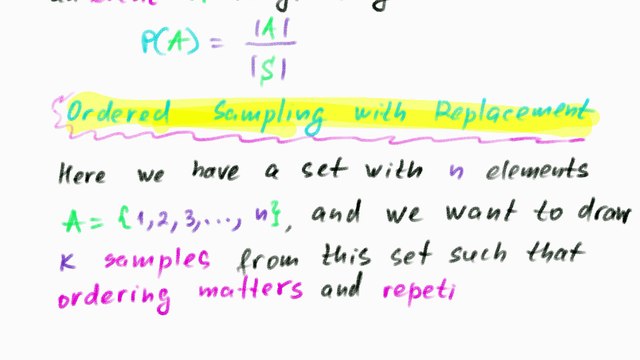 P(A) = |A| / |S|
Ordered Sampling with Replacement
Here we have a set with n elements
A = {1,2,3,..., n}, and we want to draw
K samples from this set such that
ordering matters and repeti